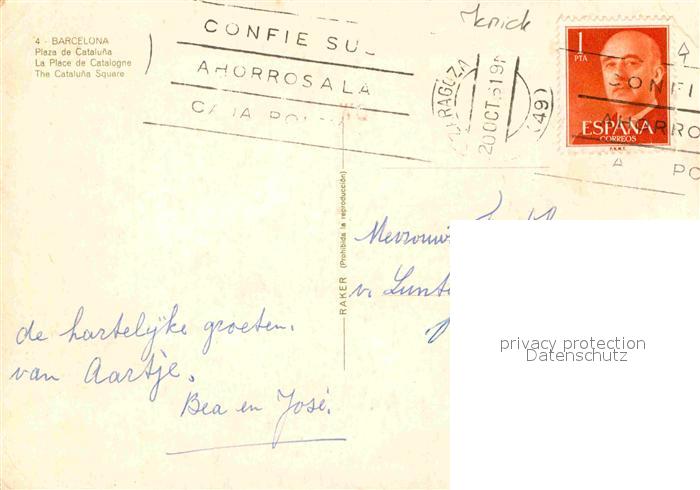 4 - BARCELONA
Plaza de Cataluña
La Place de Catalogne
The Cataluña Square
CONFIE SU
AHORROS A LA
20 OCT. 61
(49)
1
PTA
ESPAÑA
CORREOS
F.N.M.T.
ONFI
AHORRO
A PO
RAKER (Prohibida la reproducción)
Mevrouw
v.
de hartelijke groeten.
van Aartje.
Bea en José.
privacy protection
Datenschutz